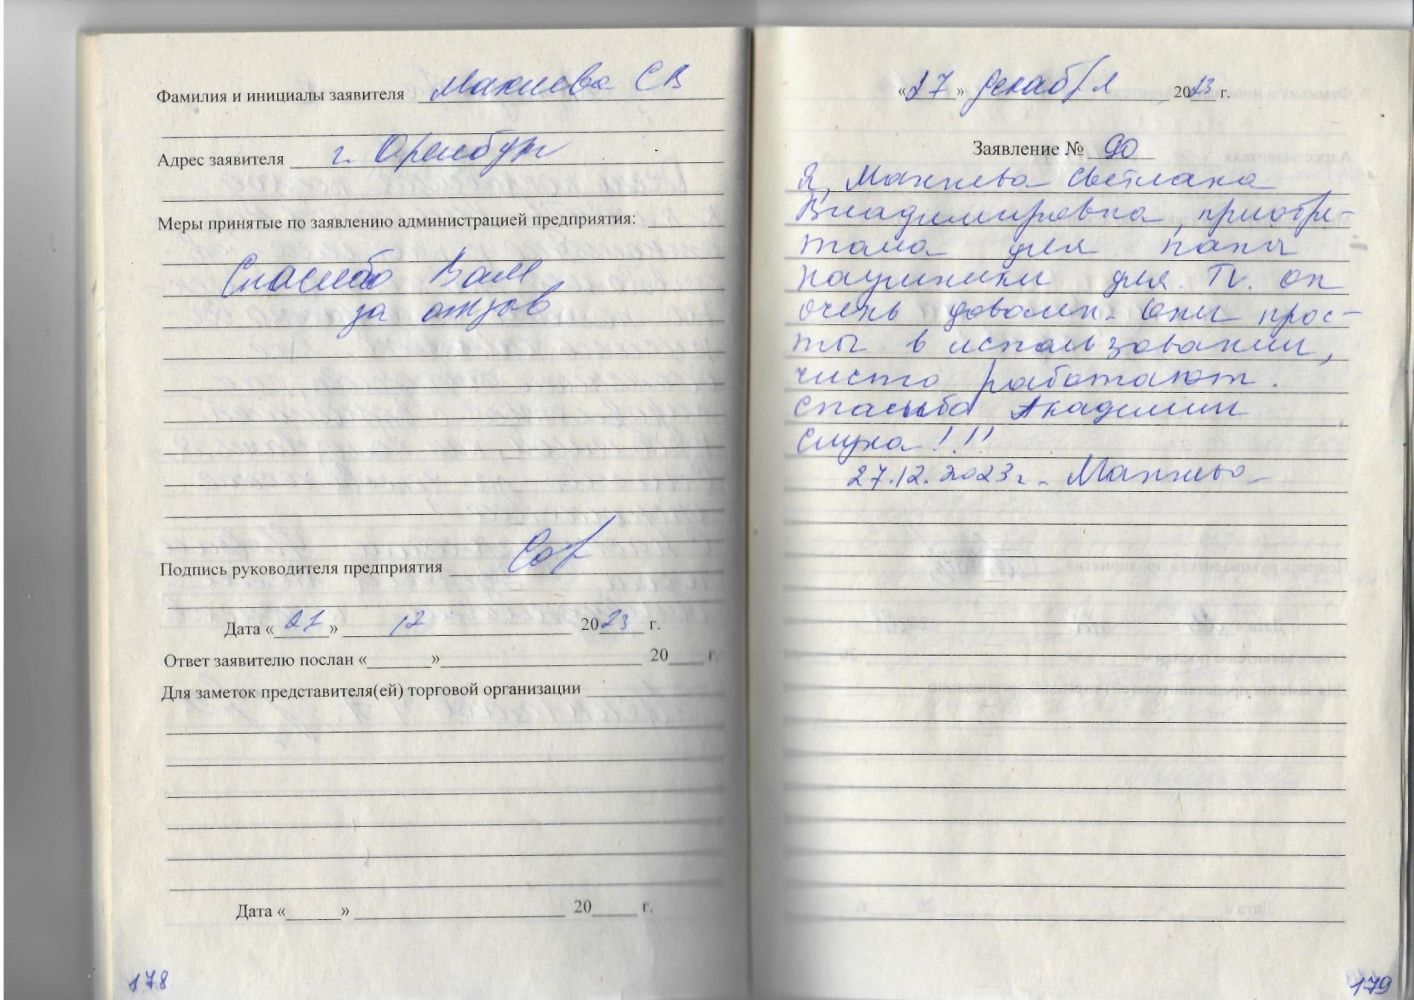 Фамилия и инициалы заявителя Макиева С В
Адрес заявителя г. Оренбург
Меры принятые по заявлению администрацией предприятия:
Спасибо Вам
за отзыв
Подпись руководителя предприятия
Дата «27» 12 2023 г.
Ответ заявителю послан «» 20 г.
Для заметок представителя(ей) торговой организации
Дата «» 20 г.
178
«27» декабря 2023 г.
Заявление № 90
Я, Светлана
Владимировна, приобре-
тала для папы
наушники для TV. он
очень доволен. Они прос-
ты в использовании,
чисто работают.
спасибо Академии
слуха!!!
27.12.2023г.
179